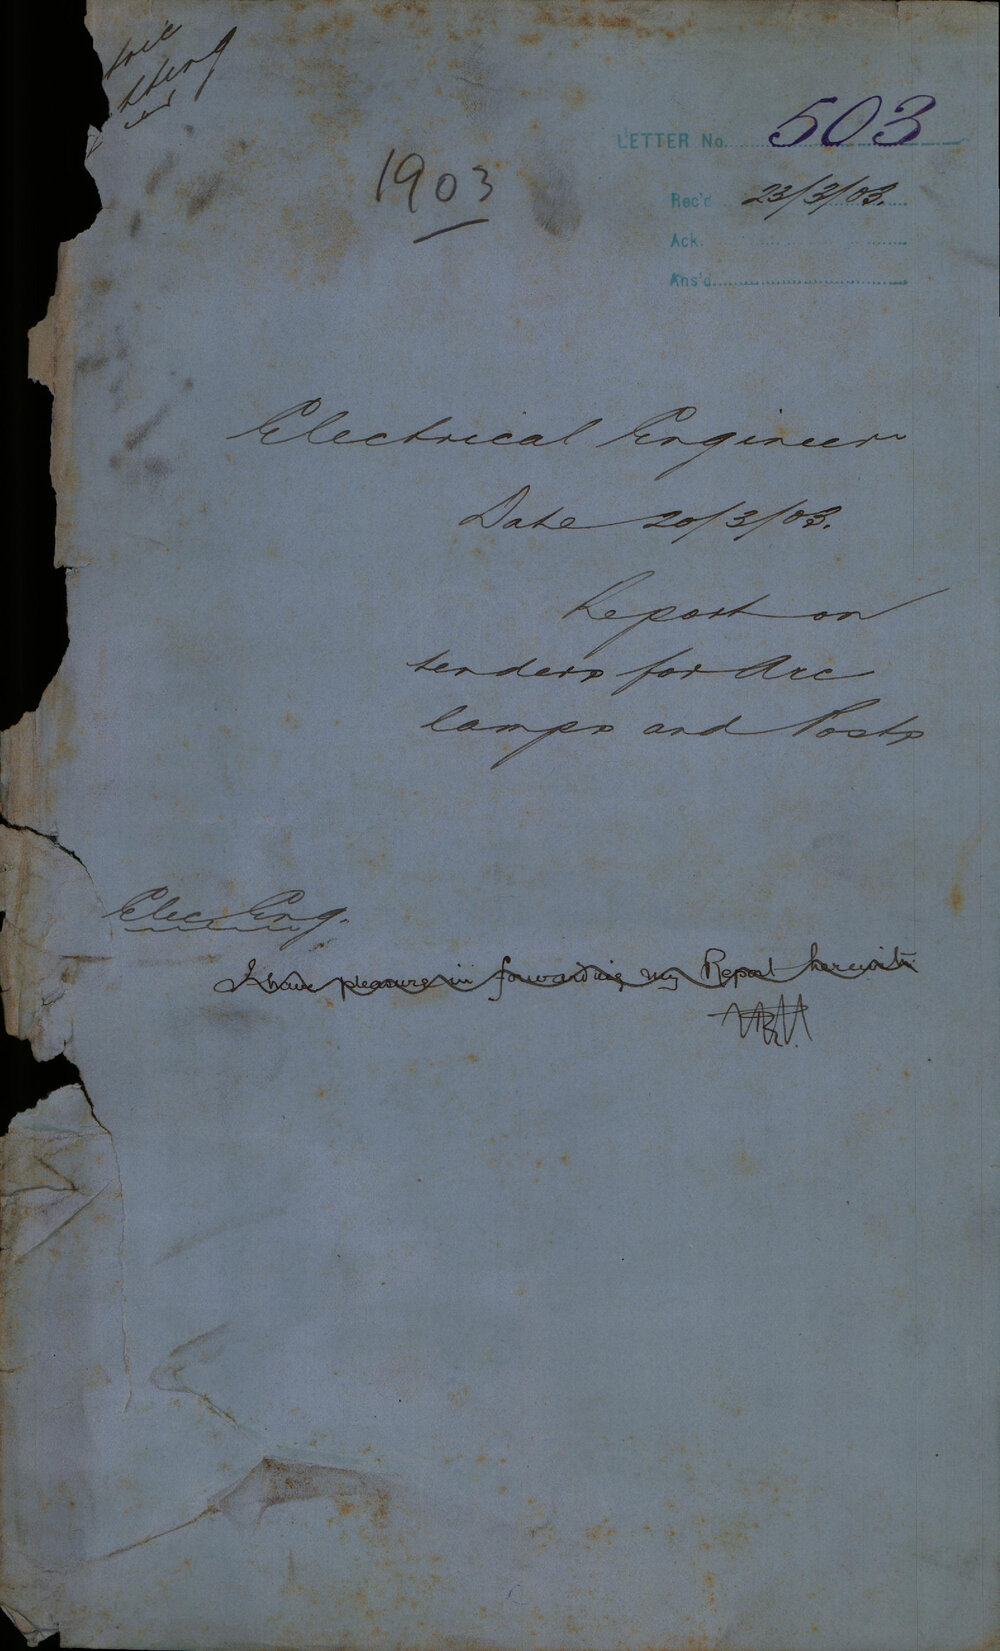 tric
hting
LETTER No. 503
1903
Rec'd 23/3/03.
Ack.
Ans'd
Electrical Engineer
Date 20/3/03.
Report on
tenders for Arc
lamps and Posts
Elec. Eng.
I have pleasure in forwarding my Report herewith